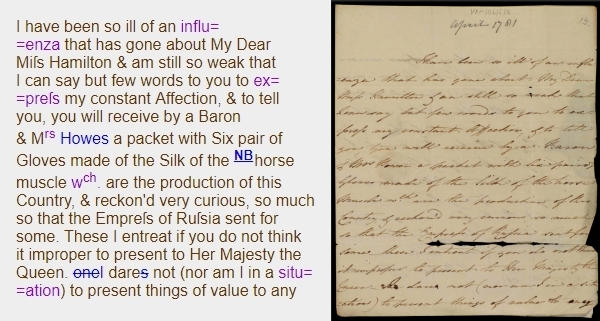 I have been so ill of an influ=
=enza that has gone about My Dear
Miſs Hamilton & am still so weak that
I can say but few words to you to ex=
=preſs my constant Affection, & to tell
you, you will receive by a Baron
& Mrs Howes a packet with Six pair of
Gloves made of the Silk of the NBhorse
muscle wch. are the production of this
Country, & reckon'd very curious, so much
so that the Empreſs of Ruſsia sent for
some. These I entreat if you do not think
it improper to present to Her Majesty the
Queen. oneI dares not (nor am I in a situ=
=ation) to present things of value to any
April 1781
I have been so ill of an influ=
=enza that has gone about My Dear
Miſs Hamilton & am still so weak that
I can say but few words to you to ex=
=preſs my constant Affection, & to tell
you, you will receive by a Baron
& Mrs Howes a packet with Six pair of
Gloves made of the Silk of the horse
muscle wch. are the production of this
Country, & reckon'd very curious, so much
so that the Empreſs of Ruſsia sent for
some. These I entreat if you do not think
it improper to present to Her Majesty the
Queen. I dare not (nor am I in a situ=
=ation) to present things of value to any